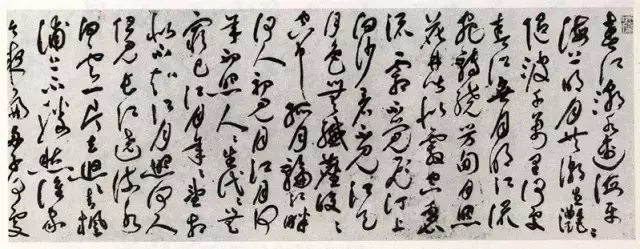 春江潮水連海平
海上明月共潮生灧〻
隨波千萬里何處
春江無月明江流
宛轉繞芳甸月照
花林皆似霰空裏
流霜不覺飛汀上
白沙看不見江天
一色無纖塵皎〻
空中孤月輪江畔
何人初見月江月何
年初照人〻生代〻無
窮已江月年〻望相
似不知江月照何人
但見長江送流水
白雲一片去悠〻青楓
浦上不勝愁誰家
今夜扁舟子何處